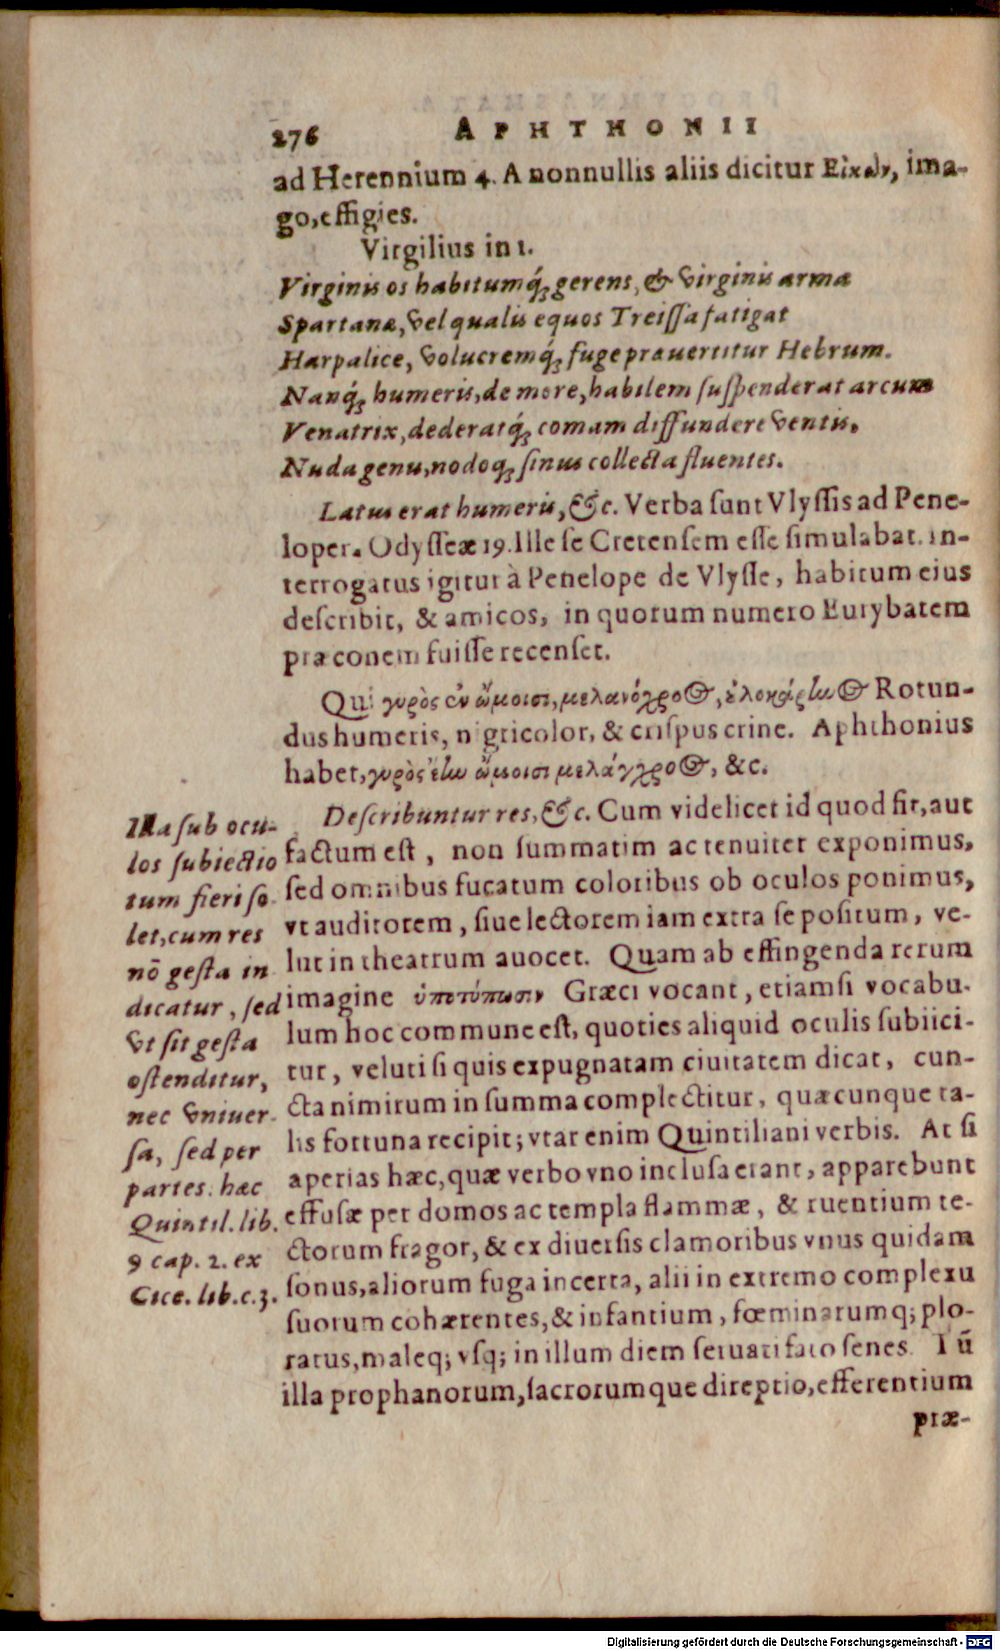 276 APHTHONII
ad Herennium 4. A nonnullis aliis dicitur Εἰκὼν, ima-
go, effigies.
Virgilius in 1.
Virginis os habitumq́; gerens, & virginis arma
Spartanæ, vel qualis equos Treissa fatigat
Harpalice, volucremq́; fuge præuertitur Hebrum.
Nanq́; humeris, de more, habilem suspenderat arcum
Venatrix, dederatq́; comam diffundere ventis.
Nuda genu, nodoq; sinus collecta fluentes.
Latus erat humeris, &c. Verba sunt Vlyssis ad Pene-
loper. Odysseæ 19. Ille se Cretensem esse simulabat. in-
terrogatus igitur à Penelope de Vlysse, habitum eius
describit, & amicos, in quorum numero Eurybatem
præconem fuisse recenset.
Qui γυρὸς ἐν ὤμοισι, μελανόχροος, Rotun-
dus humeris, nigricolor, & crispus crine. Aphthonius
habet, γυρὸς ἔην ὤμοισι μελάγχροος, &c.
Describuntur res, &c. Cum videlicet id quod fit, aut
factum est, non summatim ac tenuiter exponimus,
sed omnibus fucatum coloribus ob oculos ponimus,
vt auditorem, siue lectorem iam extra se positum, ve-
lut in theatrum auocet. Quam ab effingenda rerum
imagine ὑποτύπωσιν Græci vocant, etiamsi vocabu-
lum hoc commune est, quoties aliquid oculis subiici-
tur, veluti si quis expugnatam ciuitatem dicat, cun-
cta nimirum in summa complectitur, quæcunque ta-
lis fortuna recipit; vtar enim Quintiliani verbis. At si
aperias hæc, quæ verbo vno inclusa erant, apparebunt
effusæ per domos ac templa flammæ, & ruentium te-
ctorum fragor, & ex diuersis clamoribus vnus quidam
sonus, aliorum fuga incerta, alii in extremo complexu
suorum cohærentes, & infantium, fœminarumq; plo-
ratus, maleq; vsq; in illum diem seruati fato senes. Tū
illa prophanorum, sacrorumque direptio, efferentium
præ-
Illa sub ocu-
los subiectio
tum fieri so-
let, cum res
nō gesta in
dicatur, sed
vt sit gesta
ostenditur,
nec vniuer-
sa, sed per
partes. hæc
Quintil. lib.
9 cap. 2. ex
Cice. lib. c. 3.
Digitalisierung gefördert durch die Deutsche Forschungsgemeinschaft - DFG